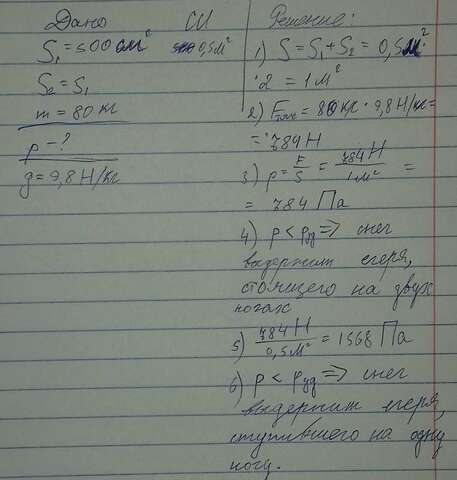 Дано СИ
S₁ = 500 см² 0,5 м²
S₂ = S₁
m = 80 кг
p - ?
g = 9,8 Н/кг
Решение:
1) S = S₁ + S₂ = 0,5 м² ·
· 2 = 1 м²
2) Fтяж = 80 кг · 9,8 Н/кг =
= 784 Н
3) p = F/S = 784 Н / 1 м² =
= 784 Па
4) p < pуд => снег
выдержит егеря,
стоящего на двух
ногах
5) 784 Н / 0,5 м² = 1568 Па
6) p < pуд => снег
выдержит егеря,
ступившего на одну
ногу.